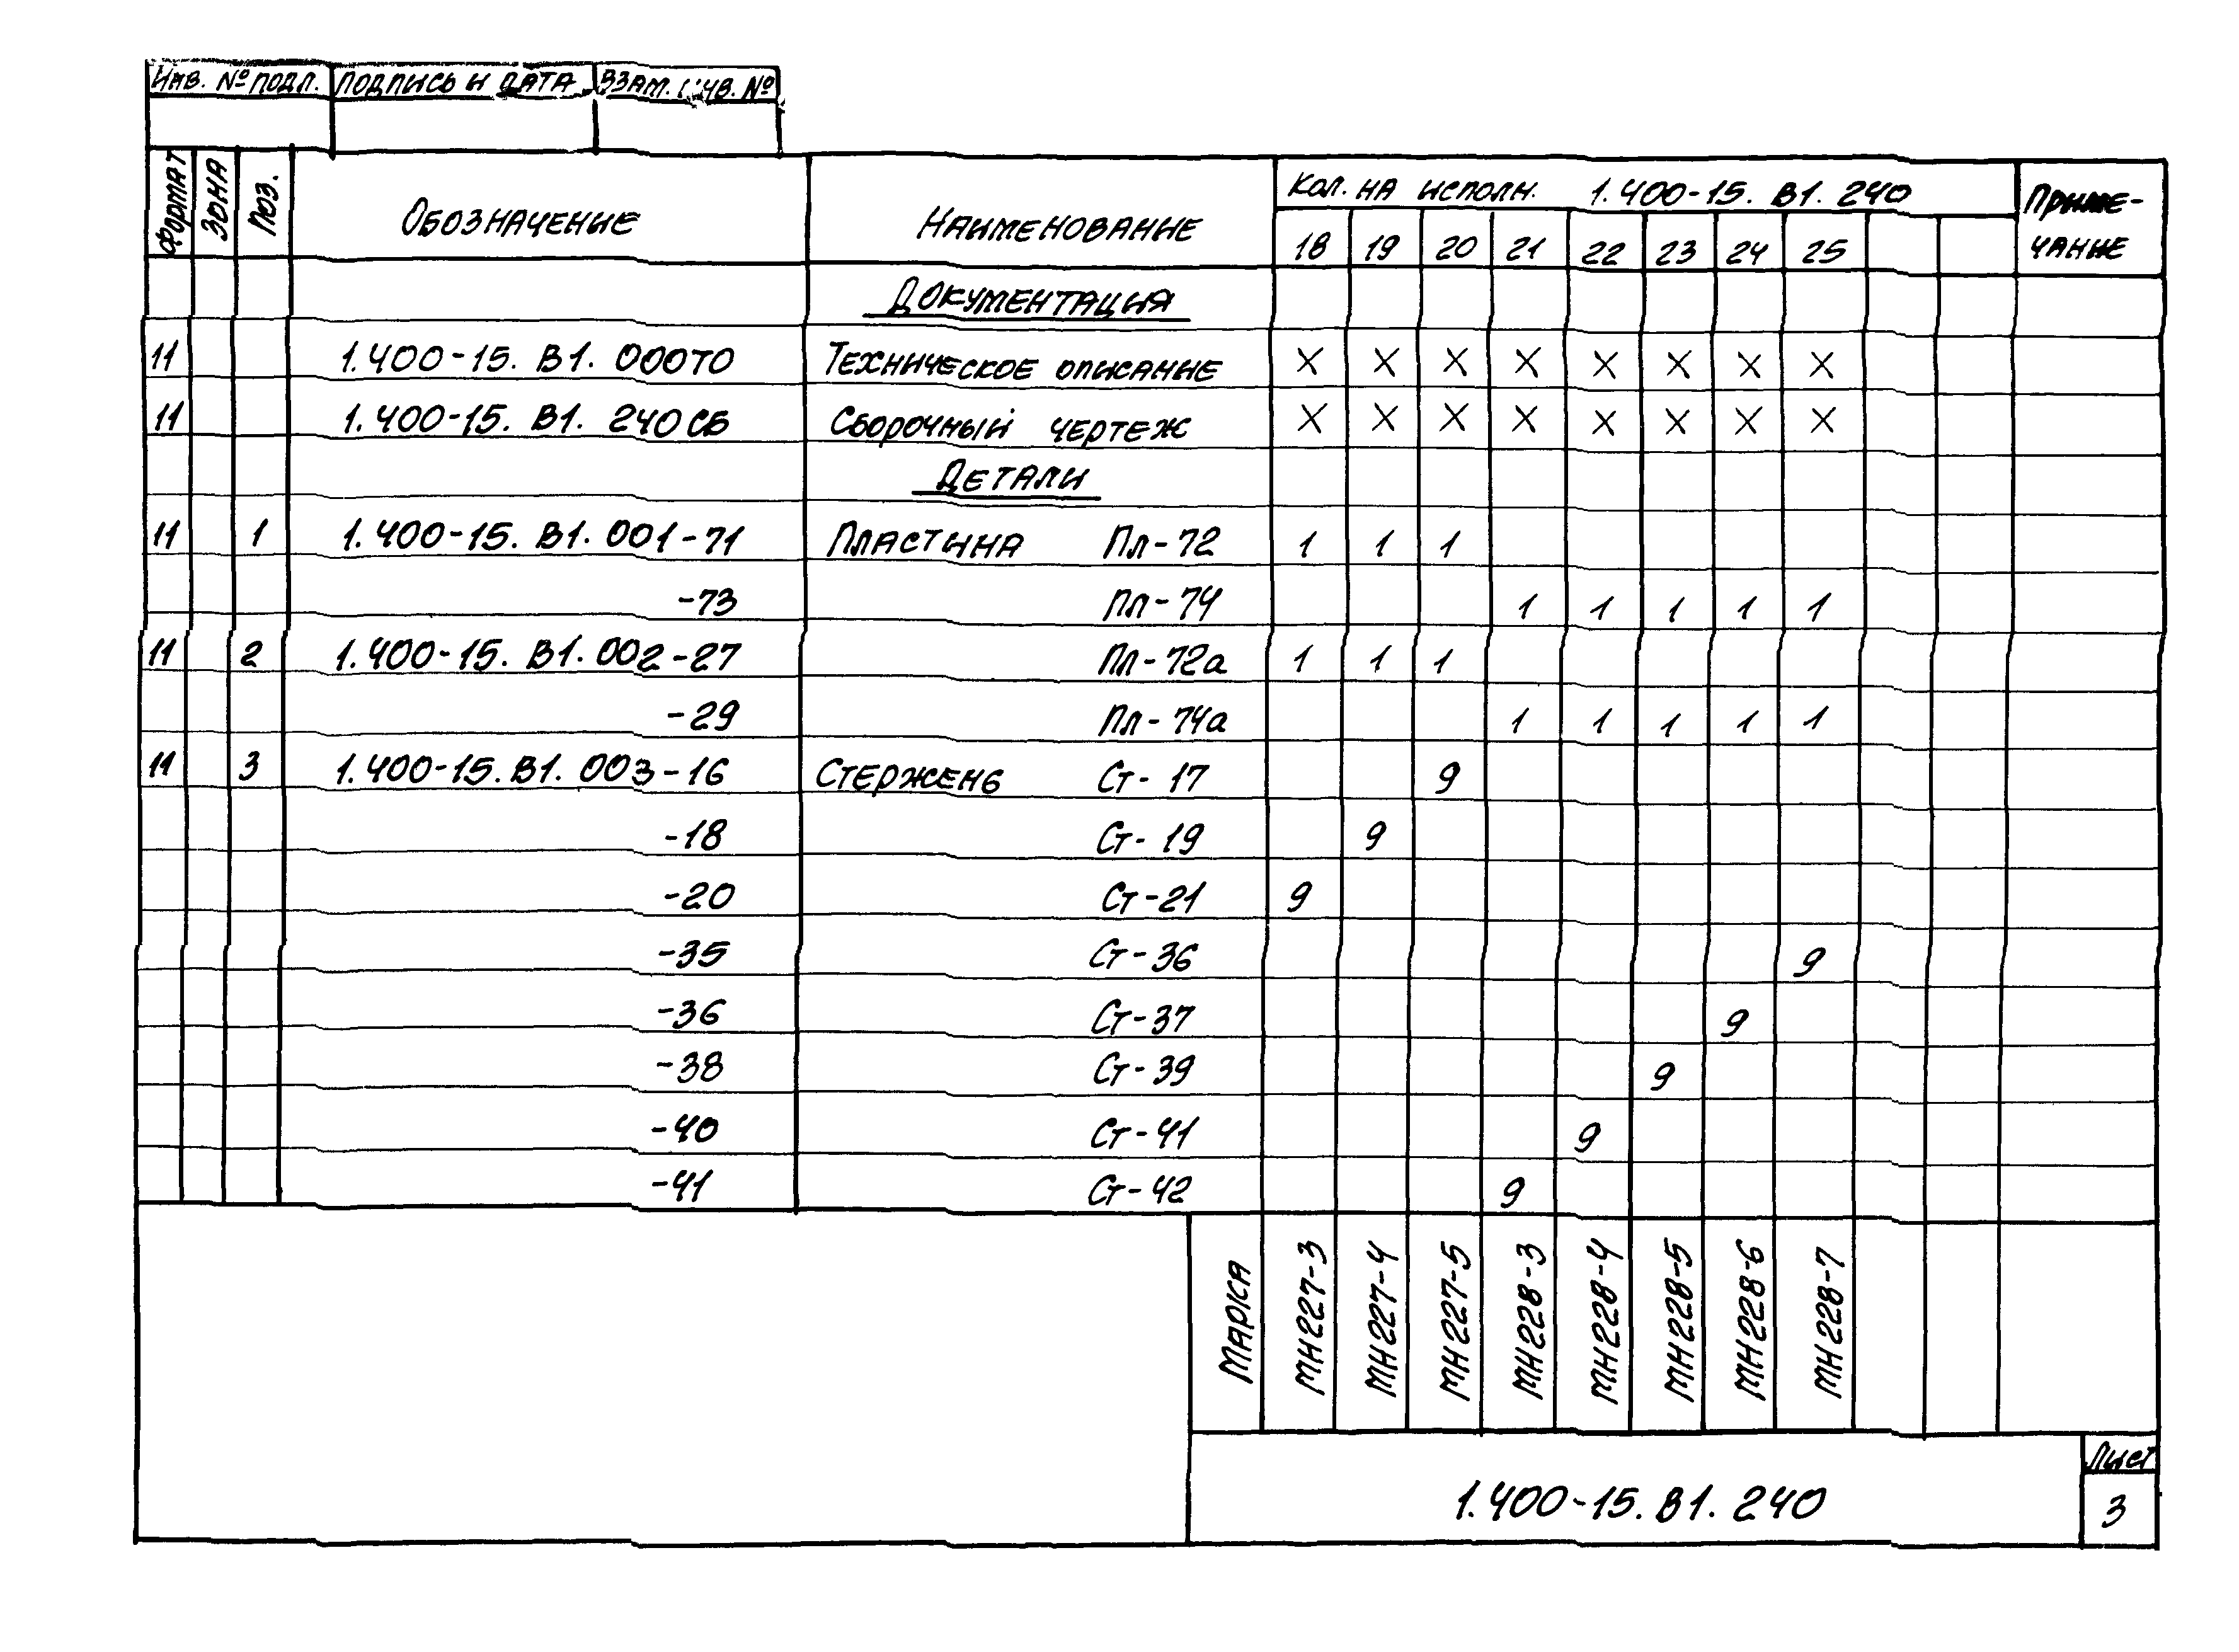 Инв. № подл. Подпись и дата Взам. инв. №
Формат Зона Поз. Обозначение Наименование Кол. на исполн. 1.400-15.В1.240 Приме-
18 19 20 21 22 23 24 25 чание
Документация
11 1.400-15.В1.000ТО Техническое описание X X X X X X X X
11 1.400-15.В1.240СБ Сборочный чертеж X X X X X X X X
Детали
11 1 1.400-15.В1.001-71 Пластина Пл-72 1 1 1
-73 Пл-74 1 1 1 1 1
11 2 1.400-15.В1.002-27 Пл-72а 1 1 1
-29 Пл-74а 1 1 1 1 1
11 3 1.400-15.В1.003-16 Стержень Ст-17 9
-18 Ст-19 9
-20 Ст-21 9
-35 Ст-36 9
-36 Ст-37 9
-38 Ст-39 9
-40 Ст-41 9
-41 Ст-42 9
Марка МН227-3 МН227-4 МН227-5 МН228-3 МН228-4 МН228-5 МН228-6 МН228-7
1.400-15.В1.240
Лист
3